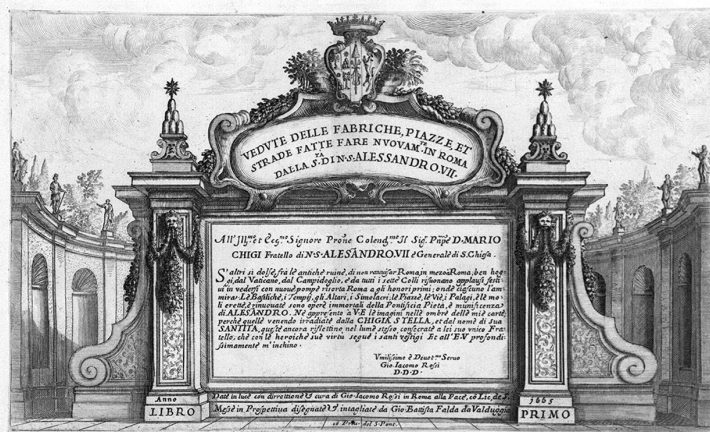 VEDVTE DELLE FABRICHE, PIAZZE, ET
STRADE FATTE FARE NVOVAM.TE IN ROMA
DALLA S.TA DI N.S. ALESSANDRO VII.
All' Ill.mo et Ecc.mo Signore Prone Colend.mo Il Sig. D. MARIO
CHIGI Fratello di N.S. ALESANDRO VII e Generale di S. Chiesa.
S'altri si dolse, fra le antiche ruine, di non ravvisar Roma, in mezo à Roma, ben hog
gi, dal Vaticano, dal Campidoglio, e da tutti i sette Colli risuonano applausi festi
ui in vedersi con nuoue pompe risorta Roma a gli honori primi; onde ciascuno l'am
mira: Le Basiliche, i Tempij, gli Altari, i Simolacri, le Piazze, le Vie, i Palagi, è le mo
li erette, è rinuouate sono opere immortali della Pontificia Pietà, è munificenza
di ALESANDRO. Ne appresento à V.E. le imagini nelle ombre delle mie carte,
perche quelle venendo irradiate dalla CHIGIA STELLA, et dal nome di Sua
SANTITA, queste ancora riflettino nel lume stesso, consecrate a lei suo unico Fra
tello, che con le heroiche sue virtu segue i santi vestigi Et all' E.V. profondis
simamente m'inchino.
Vmilissimo è Deuot.mo Seruo
Gio. Iacomo Rossi
D.D.D.
Date in luce con direttione è cura di Gio. Iacomo Rossi in Roma alla Pace, cō Lic. de S.
Anno
1665
Messe in Prospettiua disegnate è intagliate da Gio. Battista Falda da Valduggia
LIBRO
PRIMO
cō Priu. del S. Pont.